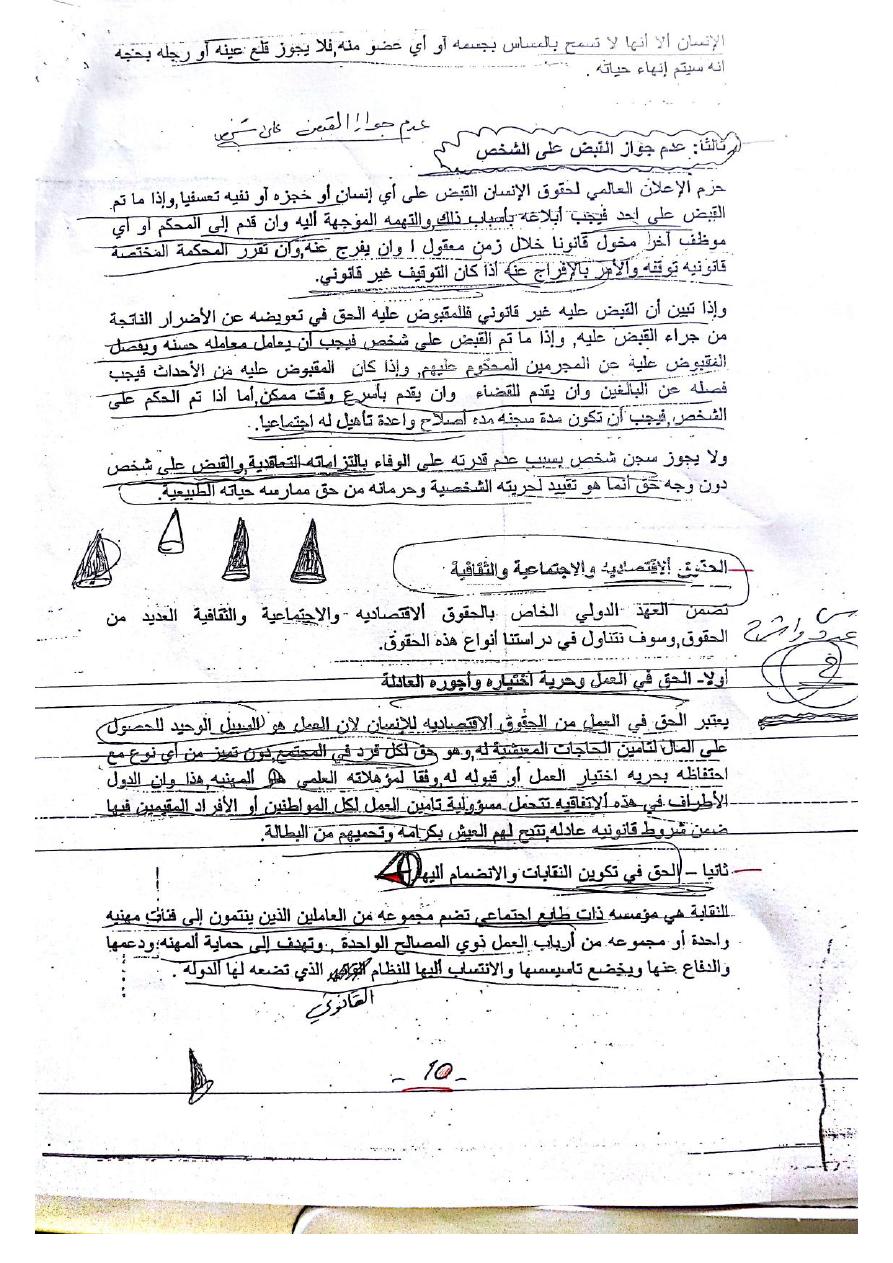 الإنسان ألا أنها لا تسمح بالمساس بجسمه أو أي عضو منه,فلا يجوز قلع عينه أو رجله بحجه
انه سيتم إنهاء حياته .
عدم جواز القبض على شخص
ثالثا: عدم جواز القبض على الشخص
حرم الإعلان العالمي لحقوق الإنسان القبض على أي إنسان أو حجزه أو نفيه تعسفيا,وإذا ما تم
القبض على احد فيجب أبلاغه بأسباب ذلك,والتهمه الموجهة أليه وان قدم إلى المحكم أو أي
موظف أخر مخول قانونا خلال زمن معقول ا وان يفرج عنه,وأن تقرر المحكمة المختصة
قانونيه توقفه والأمر بالإفراج عنه أذا كان التوقيف غير قانوني.
وإذا تبين أن القبض عليه غير قانوني فللمقبوض عليه الحق في تعويضه عن الأضرار الناتجة
من جراء القبض عليه, وإذا ما تم القبض على شخص فيجب أن يعامل معامله حسنه ويفصل
المقبوض علية عن المجرمين المحكوم عليهم, وإذا كان المقبوض عليه من الأحداث فيجب
فصله عن البالغين وان يقدم للقضاء وان يقدم بأسرع وقت ممكن,أما أذا تم الحكم على
الشخص,فيجب أن تكون مدة سجنه مده أصلاح واعدة تأهيل له اجتماعيا.
ولا يجوز سجن شخص بسبب عدم قدرته على الوفاء بالتزاماته التعاقدية,والقبض على شخص
دون وجه حق أنما هو تقييد لحريته الشخصية وحرمانه من حق ممارسه حياته الطبيعية.
الحقوق ألاقتصاديه والاجتماعية والثقافية
تضمن العهد الدولي الخاص بالحقوق ألاقتصاديه والاجتماعية والثقافية العديد من
الحقوق,وسوف نتناول في دراستنا أنواع هذه الحقوق.
أولا- الحق في العمل وحرية اختياره وأجوره العادلة
يعتبر الحق في العمل من الحقوق ألاقتصاديه للإنسان لان العمل هو السبيل الوحيد للحصول
على المال لتامين الحاجات المعيشية له,وهو حق لكل فرد في المجتمع,دون تميز من أي نوع مع
احتفاظه بحريه اختيار العمل أو قبوله له,وفقا لمؤهلاته العلمي المهنيه,هذا وان الدول
الأطراف في هذه ألاتفاقيه تتحمل مسؤولية تامين العمل لكل المواطنين أو الأفراد المقيمين فيها
ضمن شروط قانونيه عادله,تتيح لهم العيش بكرامة وتحميهم من البطالة.
ثانيا – الحق في تكوين النقابات والانضمام أليها
النقابة هي مؤسسه ذات طابع اجتماعي تضم مجموعه من العاملين الذين ينتمون إلى فئات مهنيه
واحدة أو مجموعه من أرباب العمل ذوي المصالح الواحدة , وتهدف إلى حماية المهنه,ودعمها
والدفاع عنها ويخضع تاسيسها والانتساب أليها للنظام الذي تضعه لها الدوله .
القانوني
- 10 -